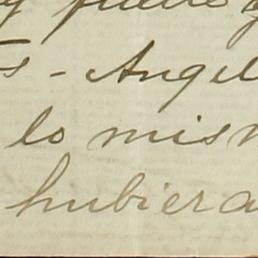 y puede
s - Angel
lo mis
hubiera